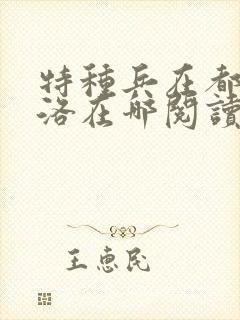 特種兵在都
洛在哪閱讀
王惠民